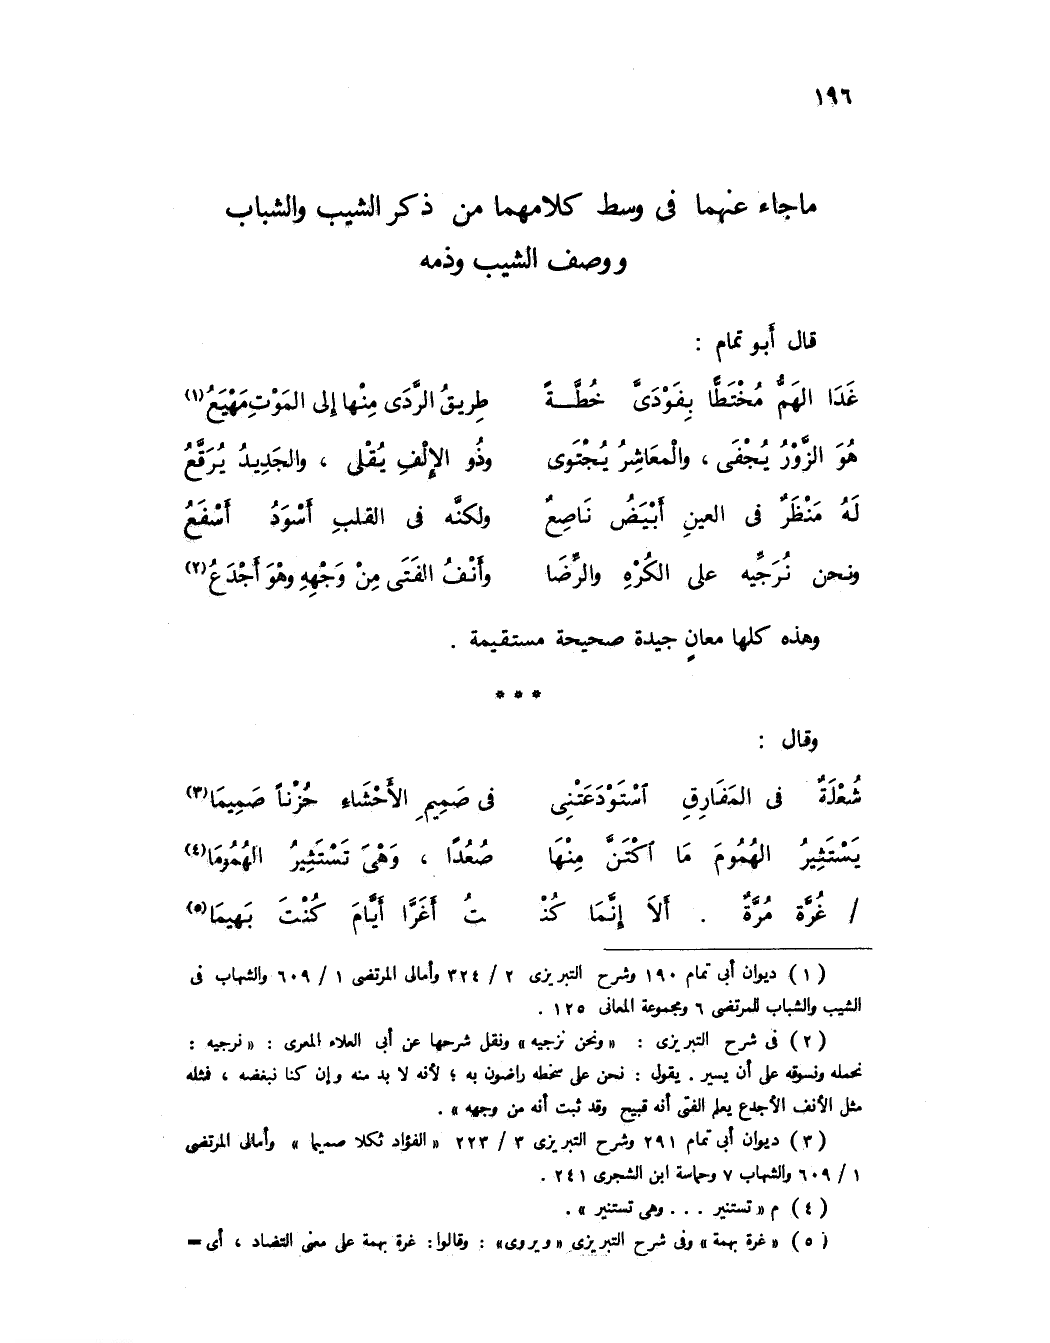 ١٩٦
ماجاء عنهما فى وسط كلامهما من ذكر الشيب والشباب
ووصف الشيب وذمه
قال أبو تمام :
غَدَا الهَمُّ مُخْتَطًّا بِفَوْدَىَّ خُطَّــةً طِريقُ الرَّدَى مِنْها إلى المَوْتِ مَهْيَعُ(١)
هُوَ الزَّوْرُ يُجْفَى ، والْمعَاشِرُ يُجْتَوى وذُو الإلْفِ يُقْلى ، والجَدِيدُ يُرَقَّعُ
لَهُ مَنْظَرٌ فى العينِ أَبْيَضُ نَاصِعٌ ولكنَّه فى القلبِ أَسْوَدُ أَسْفَعُ
ونحن نُرَجِّيه على الكُرْهِ والرِّضَا وأَنْفُ الفَتَى مِنْ وَجْهِهِ وهْوَ أَجْدَعُ(٢)
وهذه كلها معانٍ جيدة صحيحة مستقيمة .
* * *
وقال :
شُعْلَةٌ فى المَفَارِقِ ٱسْتَوْدَعَتْنِى فى صَمِيمِ الأَحْشَاءِ حُزْناً صَمِيمَا(٣)
يَسْتَثِيرُ الهُمُومَ مَا ٱكْتَنَّ مِنْهَا صُعُدًا ، وَهْىَ تَسْتَثِيرُ الهُمُومَا(٤)
/ غُرَّة مُرَّةٌ . أَلاَ إِنَّمَا كُنْـ ـتُ أَغَرَّا أَيَّامَ كُنْتَ بَهِيمَا(٥)
(١) ديوان أبى تمام ١٩٠ وشرح التبريزى ٢ / ٣٢٤ وأمالى المرتضى ١ / ٦٠٩ والشهاب فى
الشيب والشباب للمرتضى ٦ ومجموعة المعانى ١٢٥ .
(٢) فى شرح التبريزى : «ونحن نزجيه» ونقل شرحها عن أبى العلاء المعرى : «نرجيه :
نحمله ونسوقه على أن يسير . يقول : نحن على سخطه راضون به ؛ لأنه لا بد منه وإن كنا نبغضه ، فثله
مثل الأنف الأجدع يعلم الفتى أنه قبيح وقد ثبت أنه من وجهه» .
(٣) ديوان أبى تمام ٢٩١ وشرح التبريزى ٣ / ٢٢٣ «الفؤاد ثكلا صميما» وأمالى المرتضى
١ / ٦٠٩ والشهاب ٧ وحماسة ابن الشجرى ٢٤١ .
(٤) م «تستنير . . . وهى تستنير» .
(٥) «غرة بهمة» وفى شرح التبريزى «ويروى» : وقالوا: غرة بهمة على معنى التضاد ، أى =